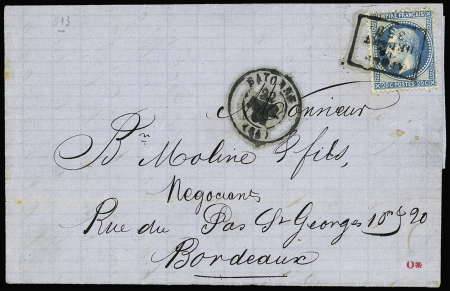 13
EMPIRE FRANÇAIS
20 C POSTES 20 C
BAYONNE
(64)
Monsieur
Bn Moline & fils,
Negociants
Rue du Pas St Georges 19 & 20
Bordeaux